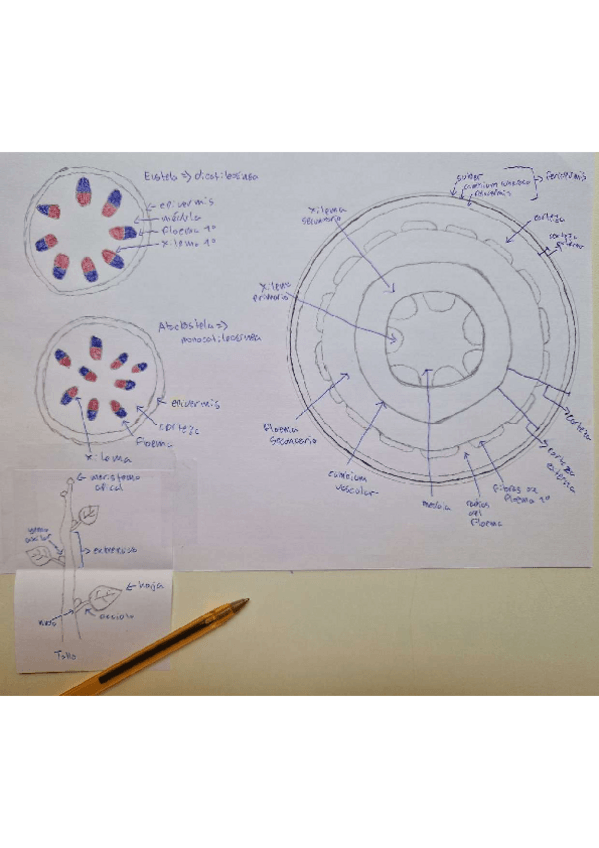 Eustela => dicotiledónea
epidermis
médula
floema 1º
xilema 1º
Atactostela =>
monocotiledónea
epidermis
corteza
floema
xilema
meristemo
apical
yema
axilar
entrenudo
hoja
nudo
peciolo
Tallo
suber
peridermis
corteza
corteza
xilema
secundario
xilema
primario
floema
secundario
cambium
vascular
médula
radios
del
floema
fibras de
floema 1º
corteza
externa
corteza